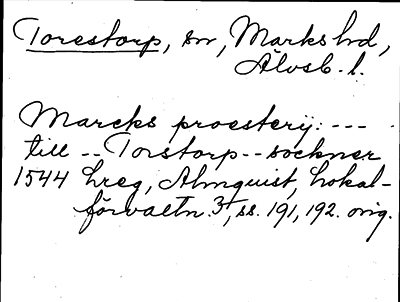 Torestorp, sn, Marks hd,
Älvsb. l.
Marcks proesterij: ---
till -- Torstorp -- sockner
1544 hreg, Almquist, Lokal-
förvaltn. 3, ss. 191, 192. orig.